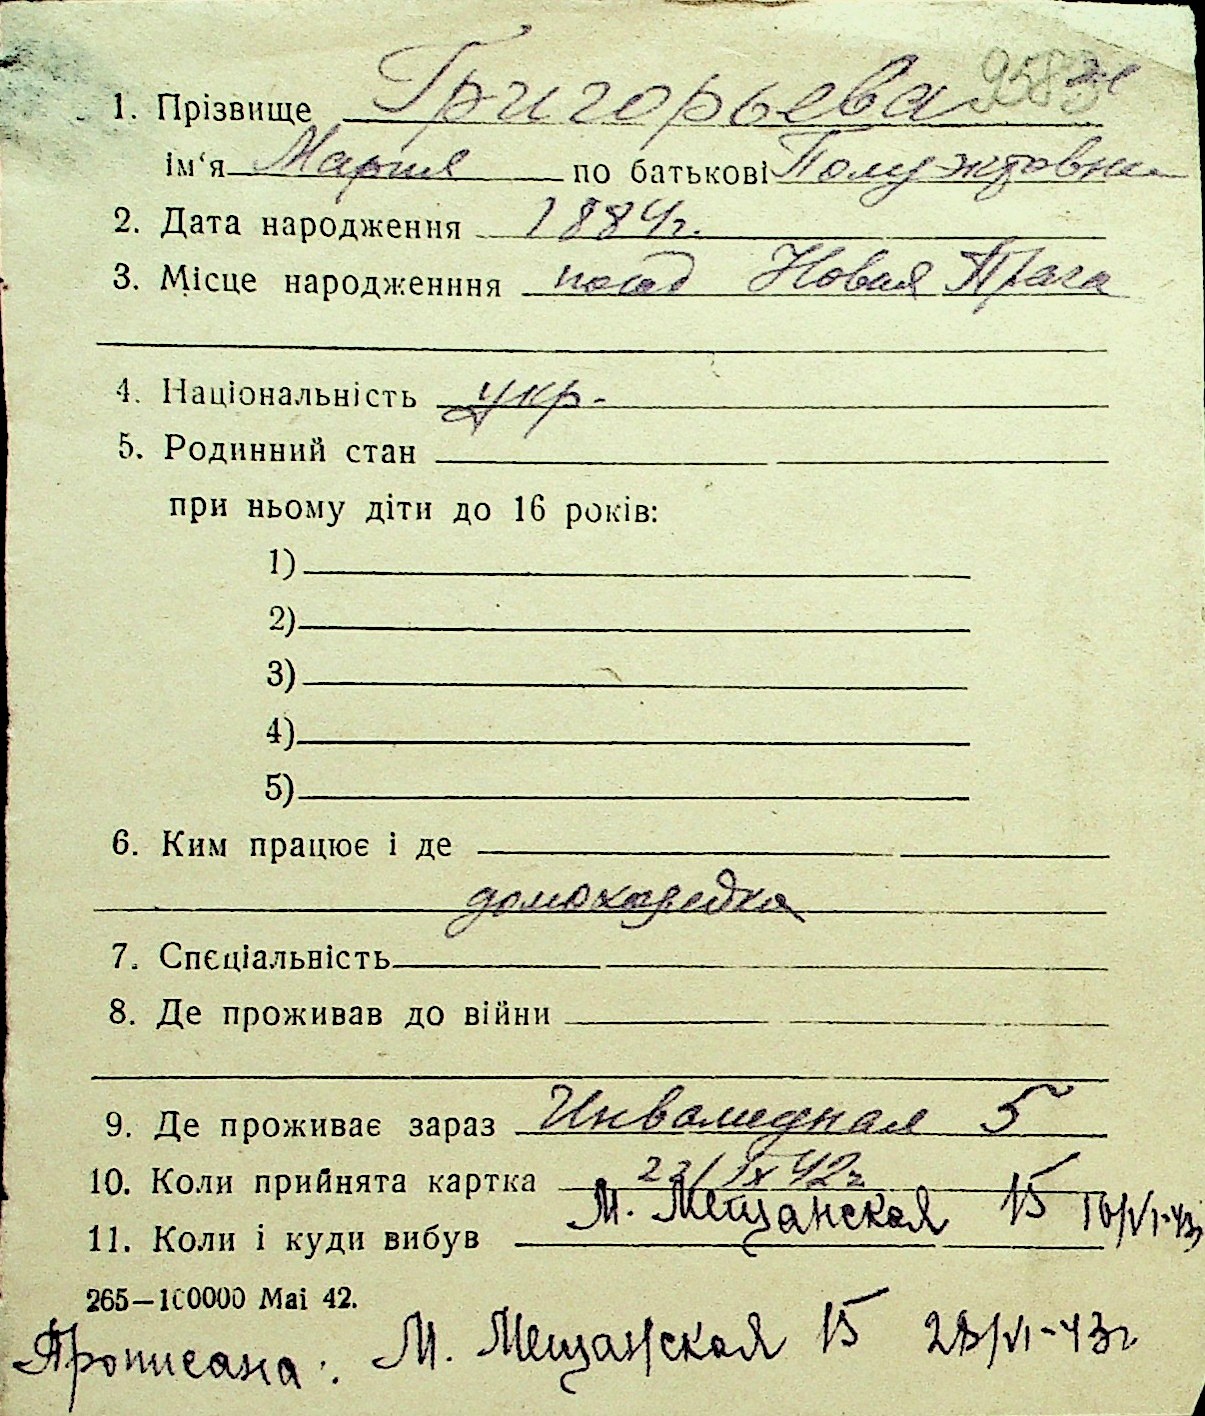 1. Прізвище Григорьева
ім‘я Мария по батькові
2. Дата народження 1884г.
3. Місце народженння посад Новая Прага
4. Національність укр.
5. Родинний стан
при ньому діти до 16 років:
1)
2)
3)
4)
5)
6. Ким працює і де
домохазейка
7. Спєціальність
8. Де проживав до війни
9. Де проживає зараз Инвалидная 5
10. Коли прийнята картка 22/IX 42г
М. Мещанская 15 16/VI-43г
11. Коли і куди вибув
265—100000 Маі 42.
Прописана: М. Мещанская 15 28/VI-43г